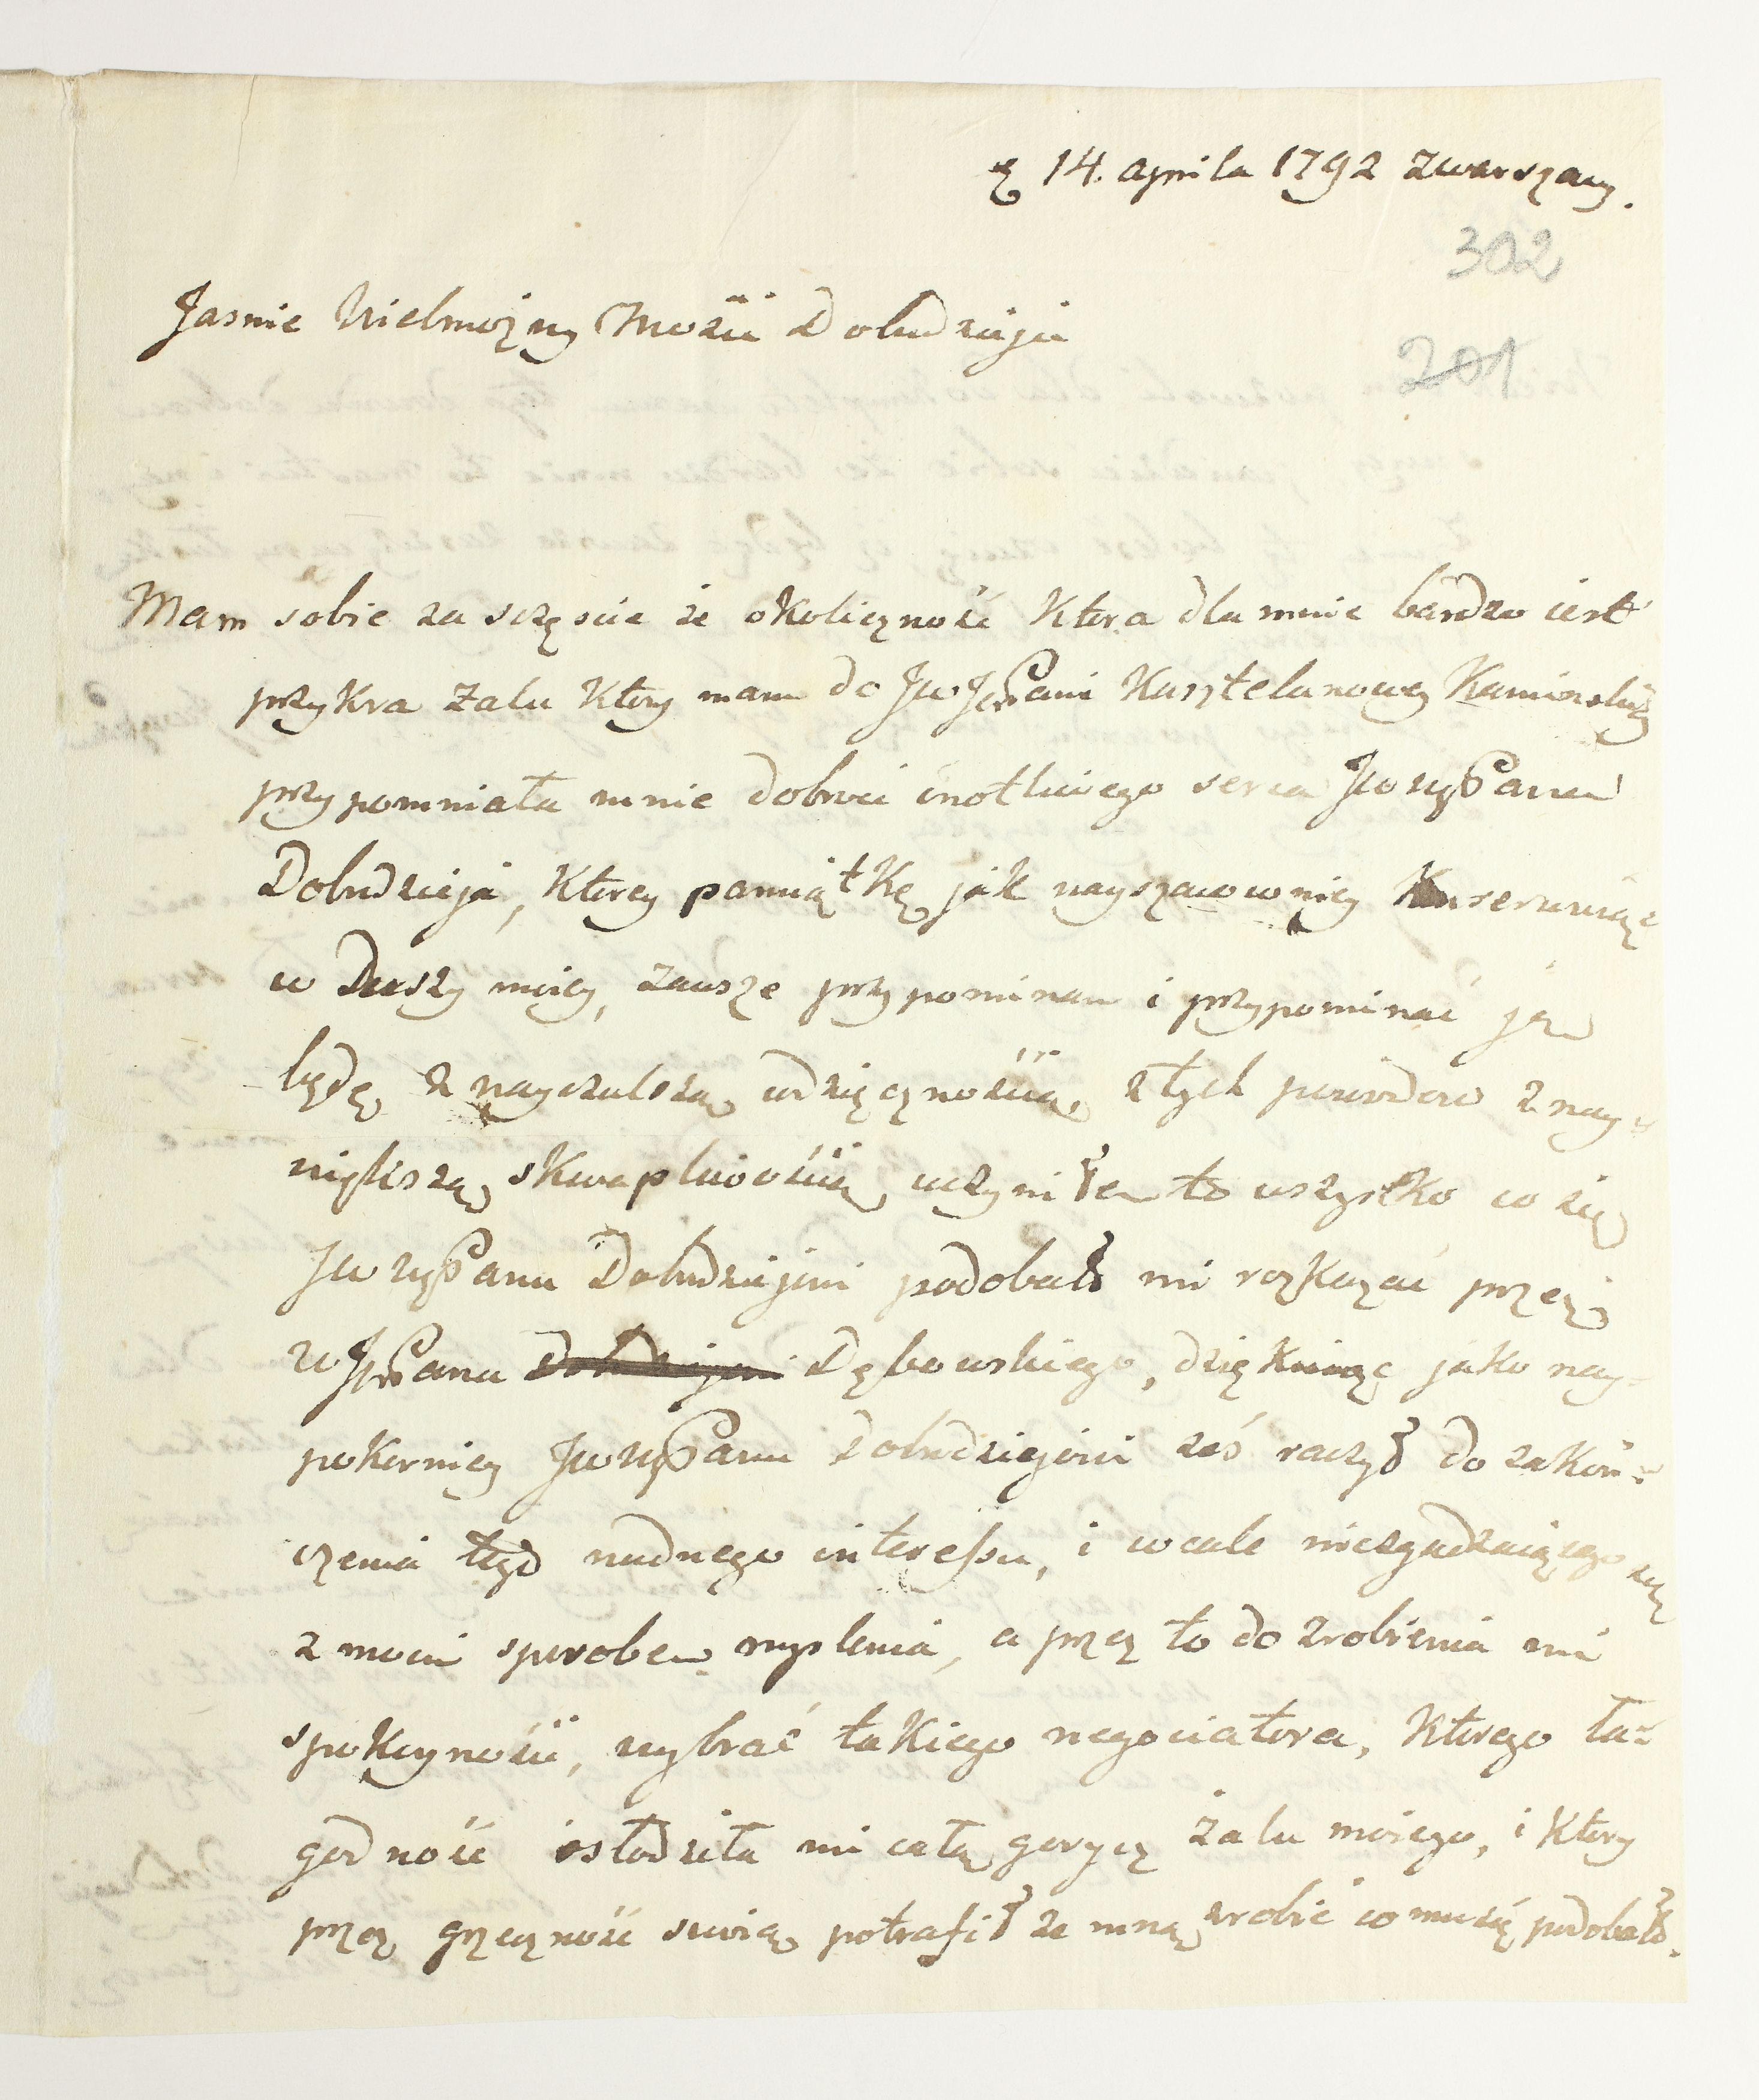 z 14. aprila 1792 z warszawy.
302
201
Jasnie Wielmożny Mości Dobrodzieju
Mam sobie za sczęście że okoliczność ktora dla mnie bardzo iest
przykra żalu ktory mam do JW JPani Kasztelanowey Kaminskiey
przypomniała mnie dobroci cnotliwego serca JWWPana
Dobrodzieja, ktorey pamiątkę jak nayszanowniey konserwuiąc
w duszy moiey, zawsze przypominam i przypominać ją
będę z nayczulszą wdzięcznością, z tych powodow z nay=
większą skwapliwością uczyniłem to wszystko co się
JWWPanu Dobrodziejowi podobało mi rozkazać przez
WJPana Dobrodzieja Dębowskiego, dziękuiąc jako nay=
pokorniey JWWPanu Dobrodziejowi żeś raczył do zakoń=
czenia tego nudnego interessu, i wcale niezgadzaiącego się
z moim sposobem myslenia, a przez to do zrobienia mi
spokoyności, wybrać takiego negociatora, ktorego ła=
godność osłodziła mi całą gorycz żalu moiego, i ktory
przez grzeczność swoią potrafił ze mną zrobić co mu się podobało.